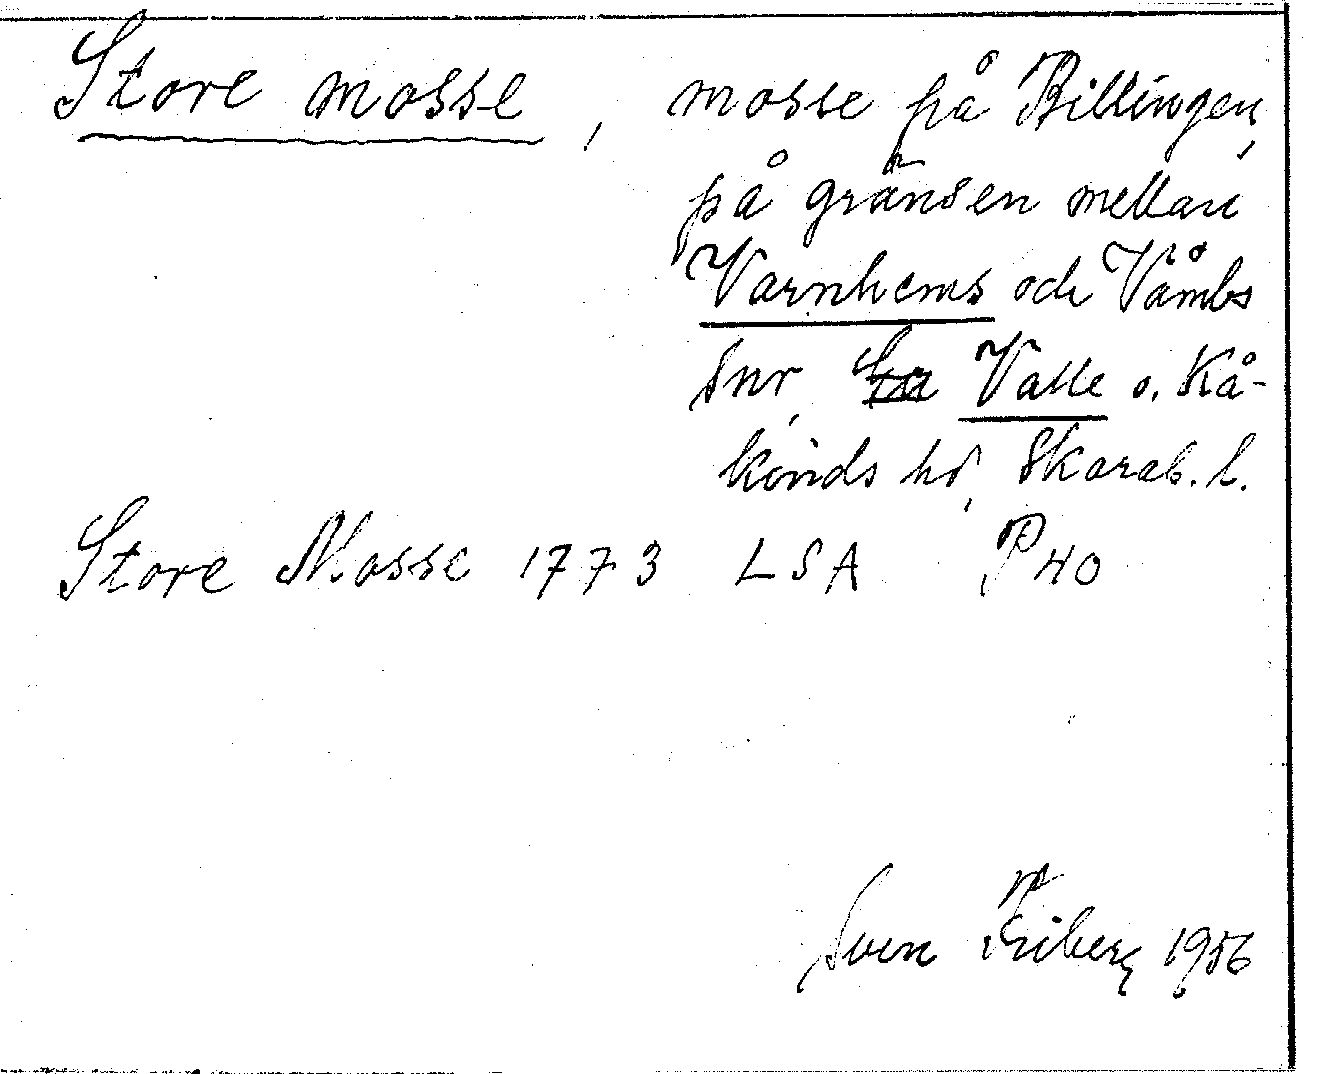 Store mosse, mosse på Billingen,
på gränsen mellan
Varnhems och Våmbs
snr, Valle o. Kå-
kinds hd, Skarab. l.
Store Mosse 1773 LSA P40
Sven Friberg 1956